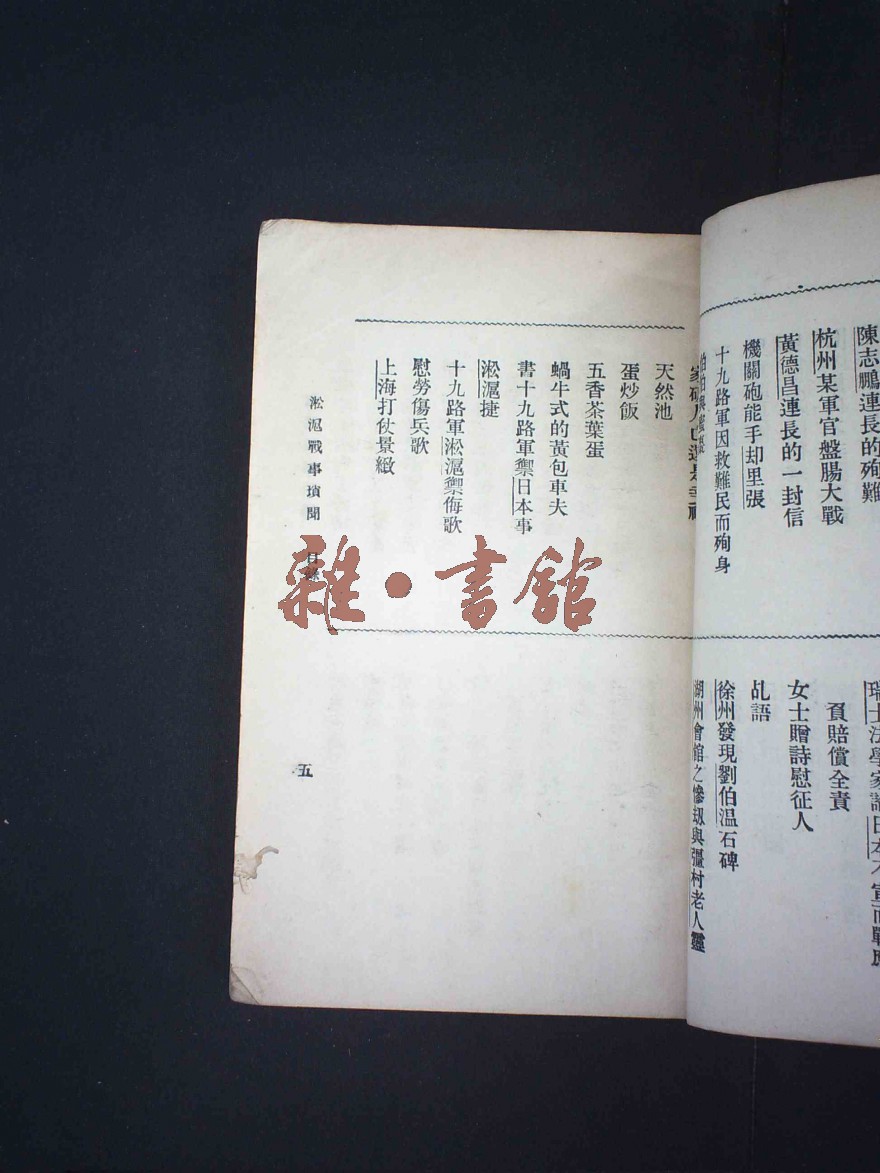 陳志鵬連長的殉難
杭州某軍官盤腸大戰
黃德昌連長的一封信
機關砲能手却里張
十九路軍因救難民而殉身
天然池
蛋炒飯
五香茶葉蛋
蝸牛式的黃包車夫
書十九路軍禦日本事
淞滬捷
十九路軍淞滬禦侮歌
慰勞傷兵歌
上海打仗景緻
瑞士法學家
負賠償全責
女士贈詩慰征人
乩語
徐州發現劉伯温石碑
湖州會館之慘刼與彊村老人靈
淞滬戰事瑣聞 目錄
五
雜·書館